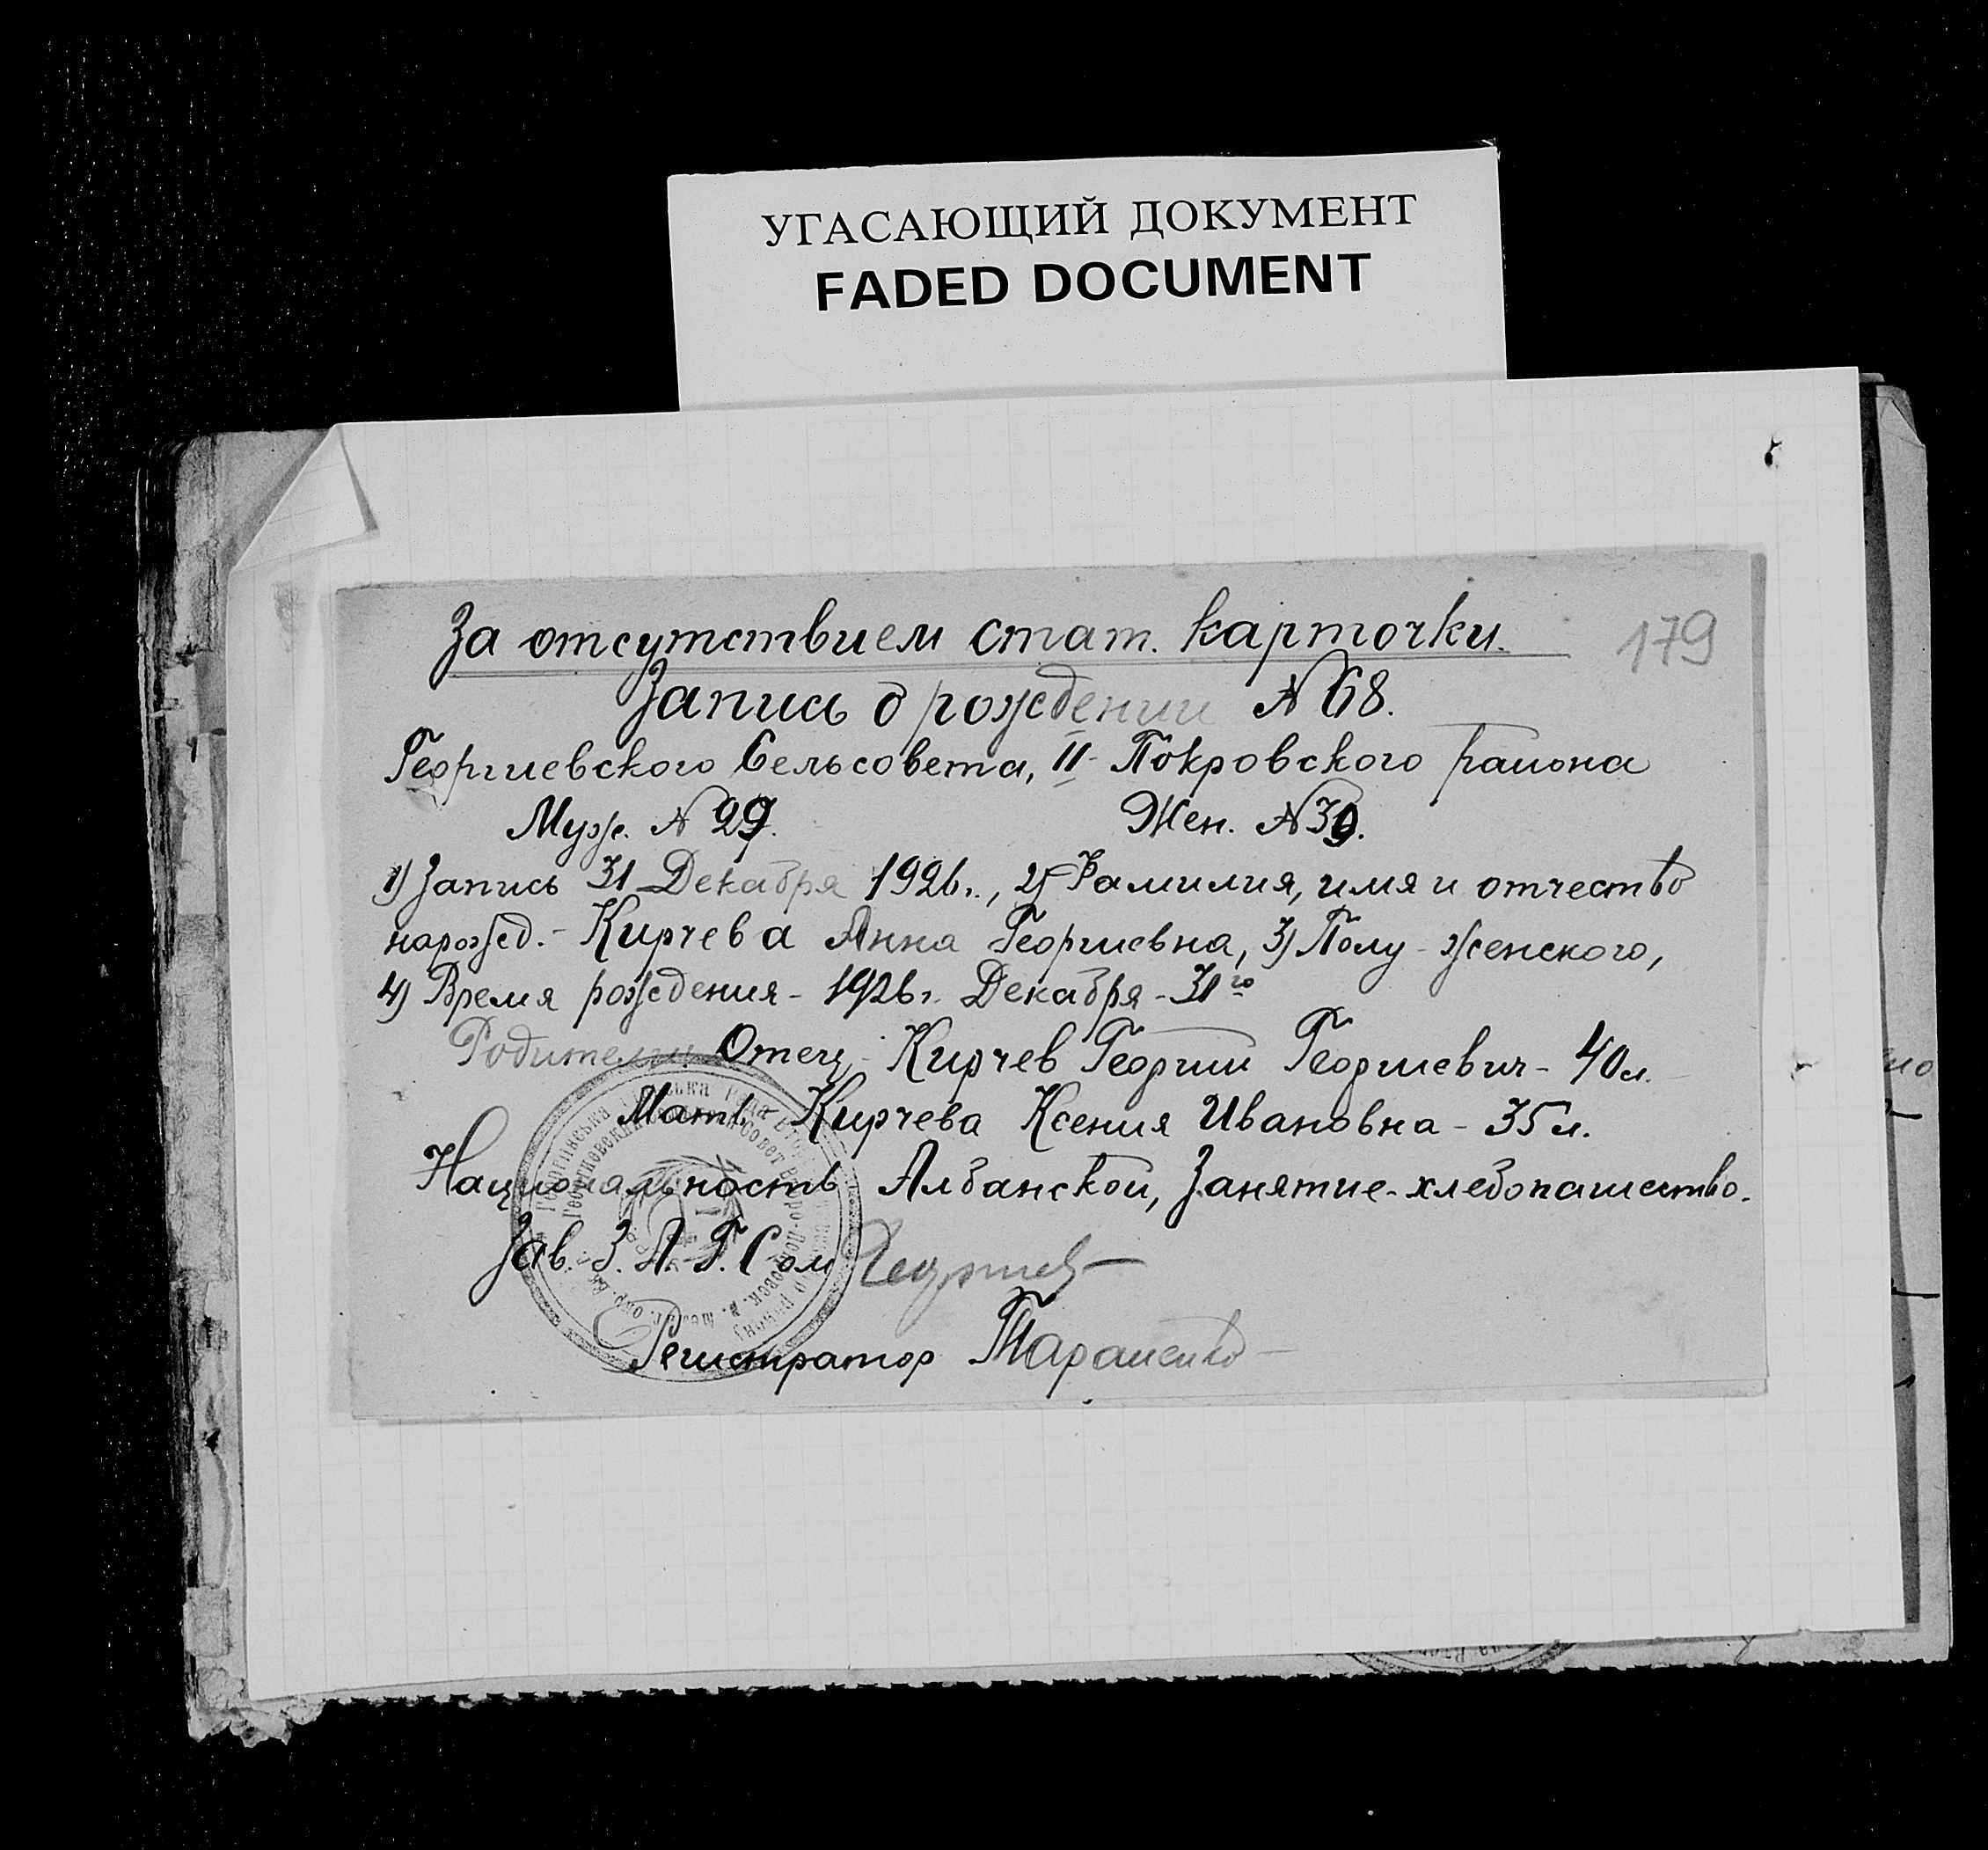 УГАСАЮЩИЙ ДОКУМЕНТ
FADED DOCUMENT
179
За отсутствием стат. карточки.
Запись о рождении № 68.
Георгиевского Сельсовета, II-Покровского района
Муж. № 29. Жен. № 39.
1) Запись 31 Декабря 1926 г., 2) Фамилия, имя и отчество
нарожд. - Кирчева Анна Георгиевна, 3) Полу - женского,
4) Время рождения - 1926 г. Декабря - 31го
Родители: Отец - Кирчев Георгий Георгиевич - 40 л.
Мать - Кирчева Ксения Ивановна - 35 л.
Национальность Албанской, Занятие - хлебопашество.
Зав. З.А.Г.С'ом Георгиев
Регистратор Тараненко